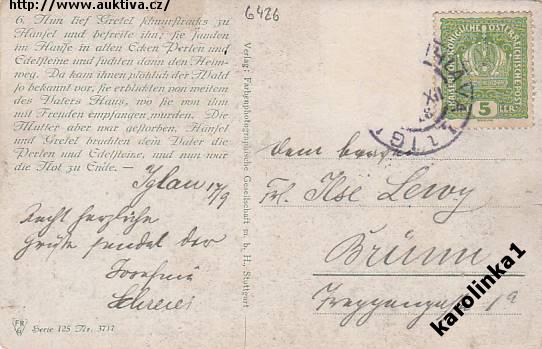 http://www.auktiva.cz
6426
6. Nun lief Gretel schnurstracks zu
Hänsel und befreite ihn; sie fanden
im Hause in allen Ecken Perlen und
Edelsteine und suchten dann den Heim-
weg. Da kam ihnen plötzlich der Wald
so bekannt vor, sie erblickten von weitem
des Vaters Haus, wo sie von ihm
mit Freuden empfangen wurden. Die
Mutter aber war gestorben. Hänsel
und Gretel brachten dem Vater die
Perlen und Edelsteine, und nun war
die Not zu Ende. —
Iglau 17/9
Recht herzliche
Grüße sendet der
FR
G
Serie 125 Nr. 3717
Verlag: Farbenphotographische Gesellschaft m. b. H., Stuttgart
5
Frl. Ilse Lewy
Brünn
karolinka1